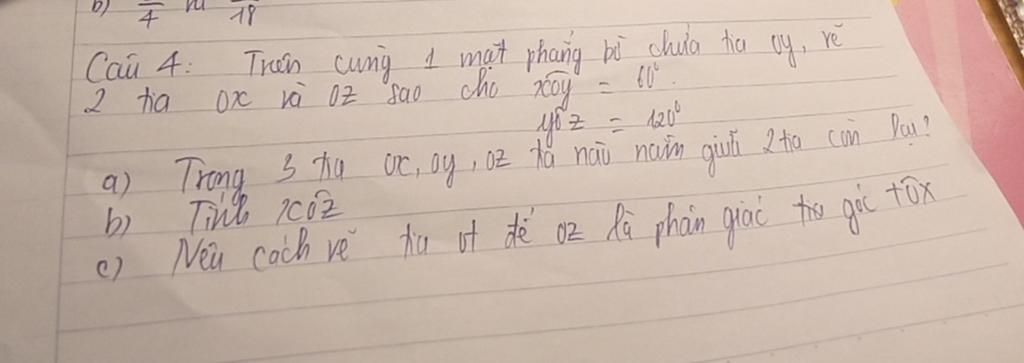 b) 4 18
Câu 4: Trên cùng 1 mặt phẳng bờ chứa tia oy, vẽ
2 tia ox và oz sao cho xôy = 60°.
yôz = 120°
a) Trong 3 tia ox, oy, oz tia nào nằm giữa 2 tia còn lại?
b) Tính xôz
c) Nêu cách vẽ tia ot để oz là phân giác góc tôx